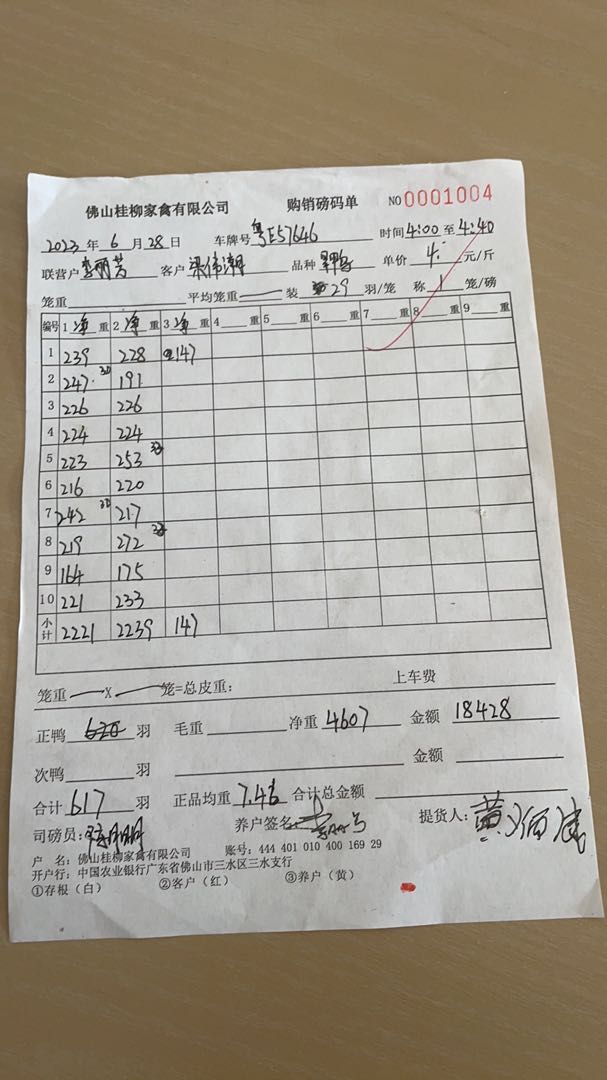 佛山桂柳家禽有限公司 购销磅码单 NO 0001004
2023 年 6 月 28 日 车牌号 粤E57646 时间 4:00 至 4:40
联营户 李丽芳 客户 梁伟潮 品种 单价 4. 元/斤
笼重 平均笼重 装 29 羽/笼 称 1 笼/磅
编号 1 净 重 2 净 重 3 净 重 4 重 5 重 6 重 7 重 8 重 9 重
1 239 228 147
2 247 30 191
3 226 226
4 224 224
5 223 253
6 216 220
7 242 30 217
8 219 272
9 164 175
10 221 233
小计 2221 2239 147
笼重 X 笼=总皮重: 上车费
正鸭 羽 毛重 净重 4607 金额 18428
次鸭 羽 金额
合计 617 羽 正品均重 7.46 合计总金额
司磅员: 养户签名 提货人: 黄
户 名: 佛山桂柳家禽有限公司 账号: 444 401 010 400 169 29
开户行: 中国农业银行广东省佛山市三水区三水支行
①存根(白) ②客户(红) ③养户(黄)